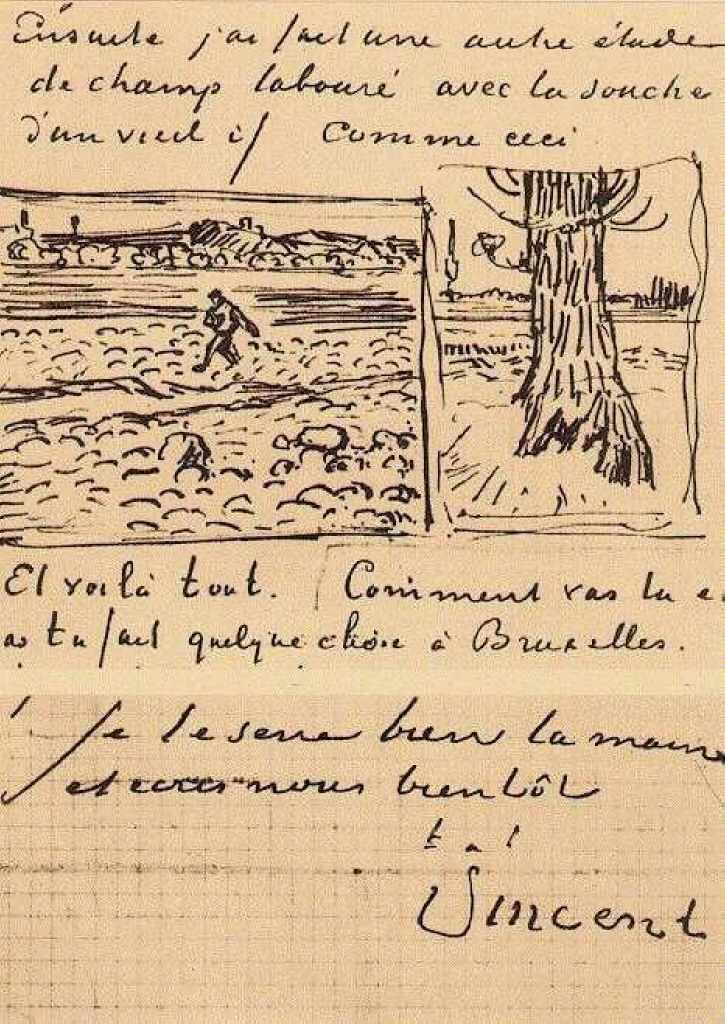 Ensuite j'ai fait une autre étude
de champ labouré avec la souche
d'un vieil if comme ceci
Et voilà tout. Comment vas tu e
as tu fait quelque chose à Bruxelles.
Je te serre bien la main
et nous bientôt
t. à t.
Vincent